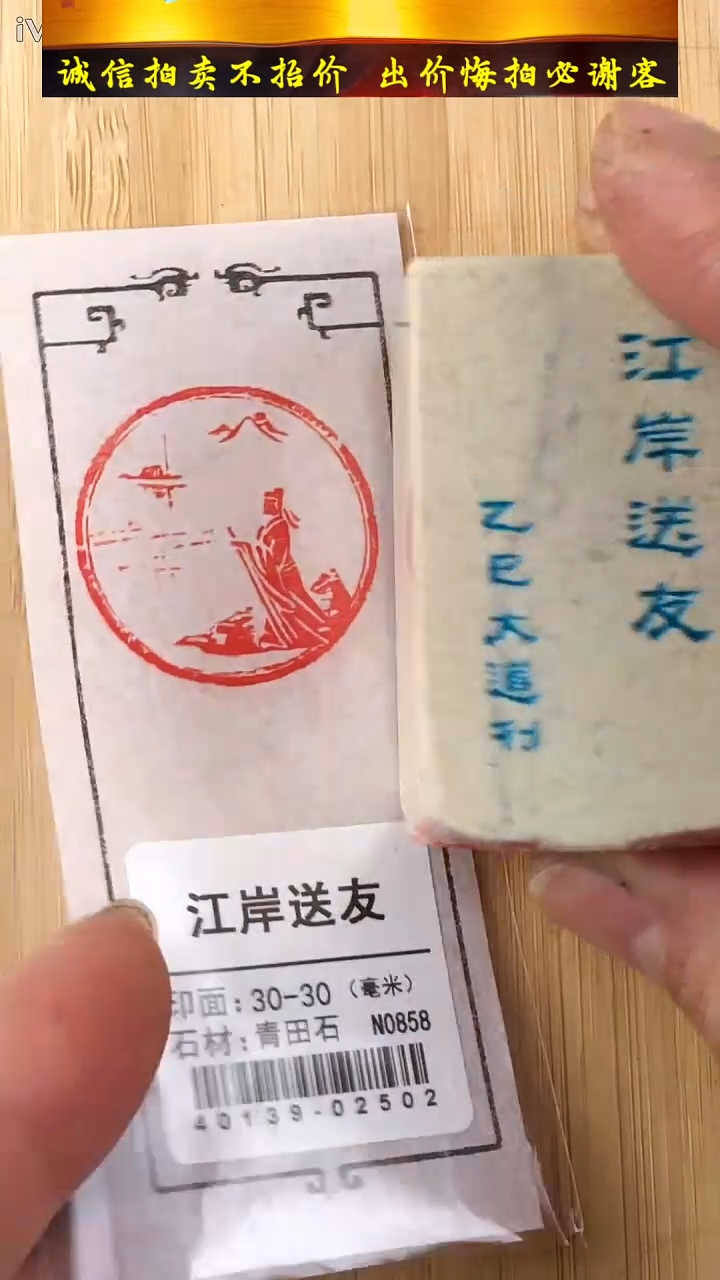 iV
诚信拍卖不招价 出价悔拍必谢客
江岸送友
乙巳大道刊
江岸送友
印面:30-30(毫米)
石材:青田石 N0858
40139-02502